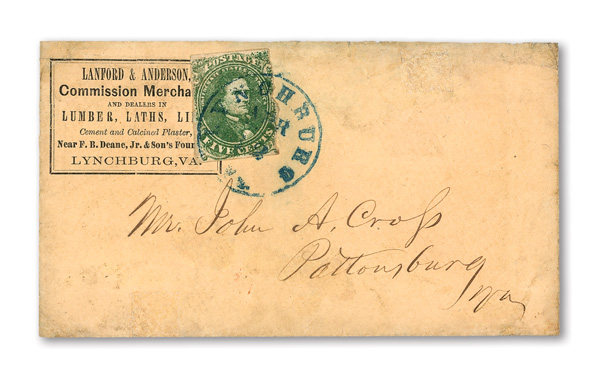 LANFORD & ANDERSON,
Commission Mercha
AND DEALERS IN
LUMBER, LATHS, LI
Cement and Calcined Plaster,
Near F. B. Deane, Jr. & Son's Foun
LYNCHBURG, VA.
POSTAGE
FIVE CENTS
LYNCHBURG
Mr. John A. Cross
Pattonsburg
Va